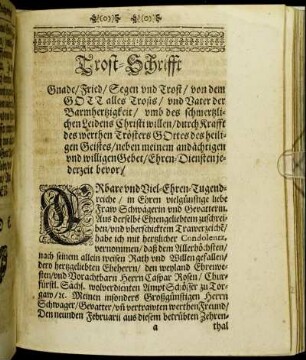 Trost-Schrifft
Gnade/ Fried/ Segen vnd Trost/ von dem
GOTT alles Trosts/ vnd Vater der
Barmhertzigkeit/ vmb des schmertzli-
chen Leidens Christi willen/ durch Krafft
des werthen Trösters GOttes des heili-
gen Geistes/ neben meinem andächtigen
vnd willigen Gebet/ Ehren-Diensten je-
derzeit bevor/
ERbare vnd Viel-Ehren-Tugend-
reiche/ in Ehren vielgünstige liebe
Fraw Schwägerin vnd Gevatterin.
Aus derselbe Ehengeliebten zuschrei-
ben/ vnd vberschicktem Trawerzeichẽ/
habe ich mit hertzlicher Condolentz,
vernommen/ daß dem Allerhöchsten/
nach seinem allein weisen Rath vnd Willen gefallen/
dero hertzgeliebten Eheherrn/ den weyland Ehrenve-
sten/ vnd Vorachtbarn Herrn Caspar Rosen/ Chur-
fürstl. Sächs. wolverdienten Ampt Schösser zu Tor-
gaw/ ꝛc. Meinen insonders Großgünstigen Herrn
Schwager/ Gevatter/ vñ vertrawten werthen Freund/
Den neundten Februarii aus diesem betrübten Zehren-
a thal